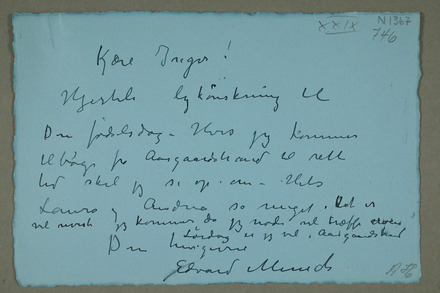 XXIX
N 1367
746
Kære Inger!
Hjertelig lykönskning til
Din födselsdag – Hvis jeg kommer
tilbage fra Aasgaardstrand til rett
tid skal jeg se op om – Hils
Laura og Andrea so meget. Det er
vel jeg kommer da jeg vel træffe
Lördag er jeg vel i Aasgaardstrand
Din hengivne
Edvard Munch